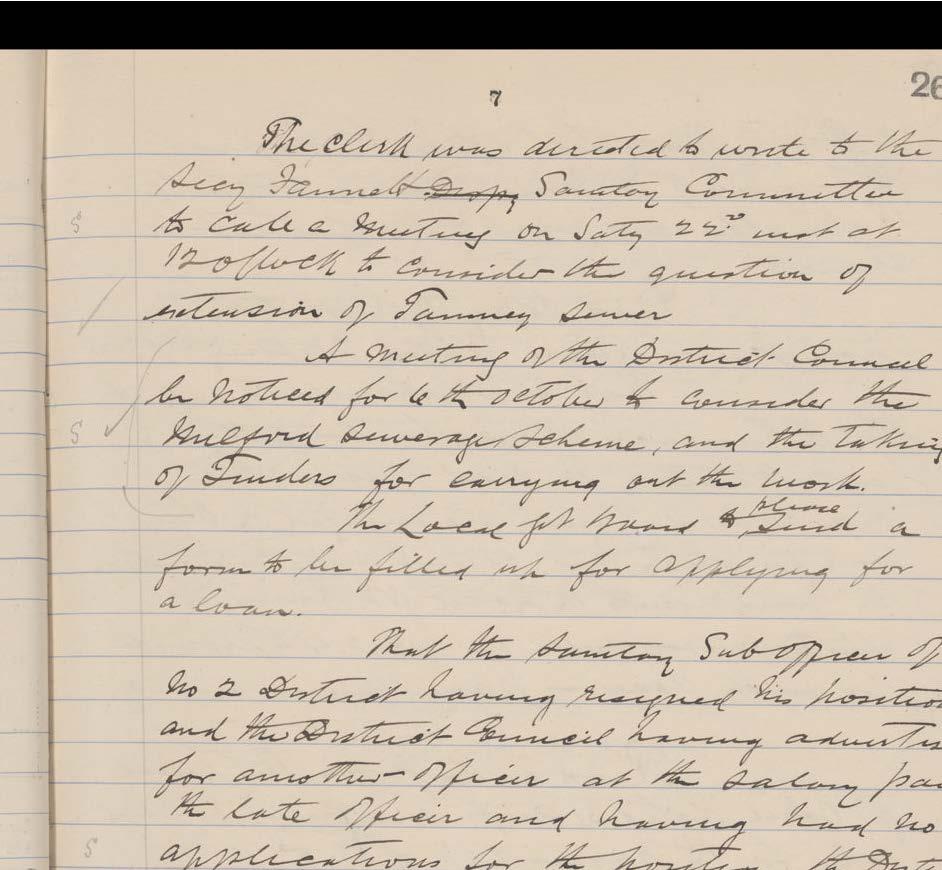 7
26
The Clerk was directed to write to the
Secy Fannett Dispy Sanitary Committee
S
to call a Meeting on Saty 22nd inst at
12 o'flock to consider the question of
extension of Tamney sewer
A Meeting of the District Council
be noticed for 6th October to consider the
S
Milford sewerage scheme, and the taking
of Tenders for carrying out the work.
please
The Local Gvt Board to send a
form to be filled up for applying for
a loan.
That the Sanitary Sub Officer of
No 2 District having resigned his position
and the District Council having advertis
for another officer at the salary pa
the late officer and having had no
S
applications for the position the Dist